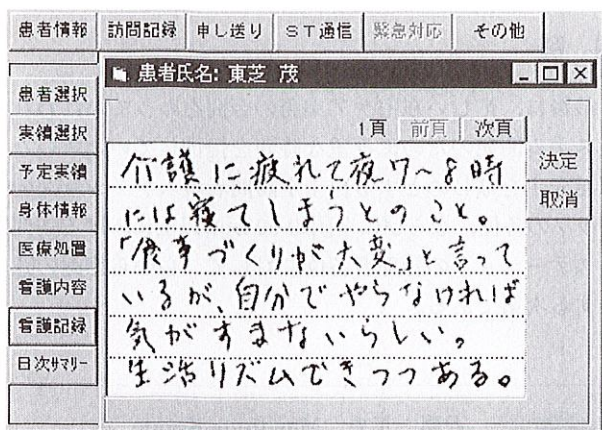 患者情報 訪問記録 申し送り ST通信 緊急対応 その他
患者氏名: 東芝 茂
患者選択
実績選択
予定実績
身体情報
医療処置
看護内容
看護記録
日次サマリー
1頁 前頁 次頁
決定
取消
介護に疲れて夜7〜8時
には寝てしまうとのこと。
「食事づくりが大変」と言って
いるが、自分でやらなければ
気がすまないらしい。
生活リズムできつつある。